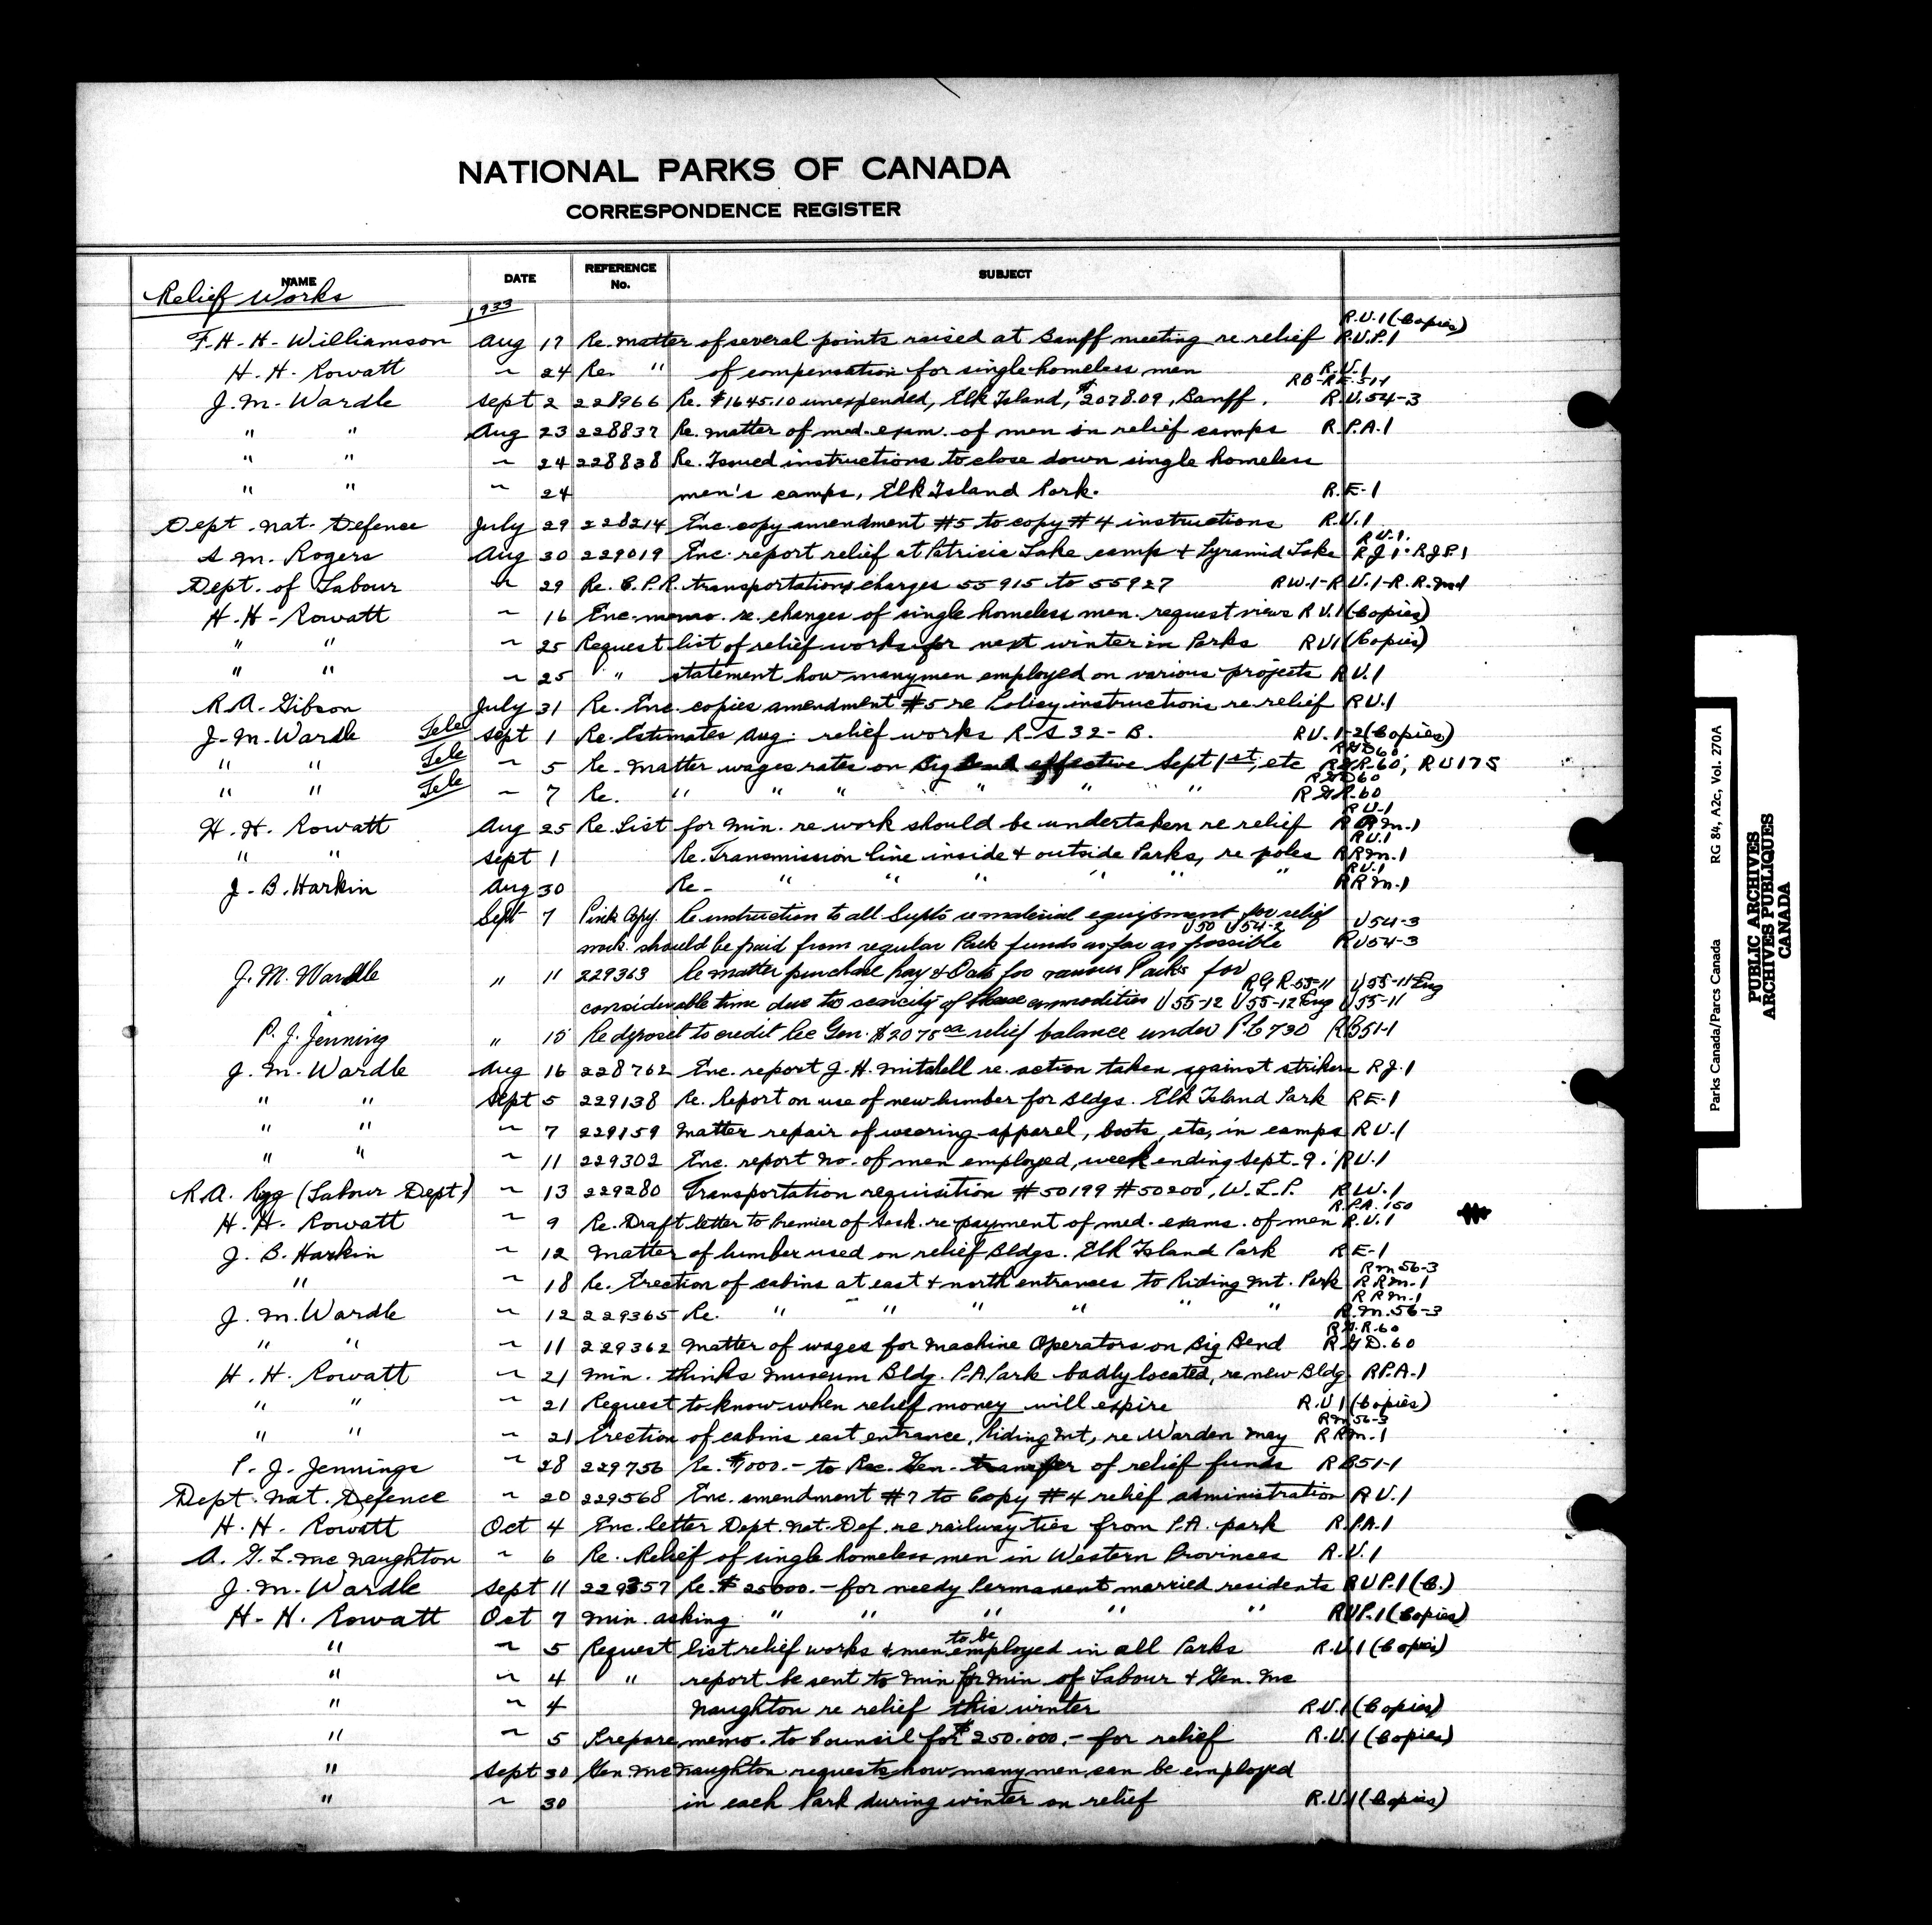 NATIONAL PARKS OF CANADA
CORRESPONDENCE REGISTER
NAME DATE REFERENCE No. SUBJECT
Relief Works
1933
R.U.1 (Copies)
F.H.H. Williamson Aug 17 Re. matter of several points raised at Banff meeting re relief R.U.P.1
H.H. Rowatt ~ 24 Re. " of compensation for single homeless men R.U.1
RB-RE.51-1
J.M. Wardle Sept 2 228966 Re. $1645.10 unexpended, Elk Island, $2078.09, Banff. R.U.54-3
" " Aug 23 228837 Re. matter of med. exam. of men in relief camps R.P.A.1
" " ~ 24 228838 Re. Issued instructions to close down single homeless
" " ~ 24 men's camps, Elk Island Park. R.E-1
Dept. Nat. Defence July 29 228214 Enc. copy amendment #5 to copy #4 instructions R.U.1
R.U.1.
S.M. Rogers Aug 30 229019 Enc. report relief at Patricia Lake camp & Pyramid Lake RJ1-RJP1
Dept. of Labour ~ 29 Re. C.P.R. transportation charges 55915 to 55927 RW.1-R U.1-R.R.M1
H.H. Rowatt ~ 16 Enc. memo. re. changes of single homeless men. request views R U.1 (Copies)
" " ~ 25 Request list of relief works for next winter in Parks RU1 (Copies)
" " ~ 25 " statement how many men employed on various projects R U.1
R.A. Gibson July 31 Re. Enc. copies amendment #5 re Policy instructions re relief R U.1
J.M. Wardle Tele Sept 1 Re. Estimates Aug. relief works R.S 32-B. RU.1-2 (Copies)
RGD60
" " Tele ~ 5 Re. Matter wages rates on Big Bend effective Sept 1st, etc RGR.60, RU175
RGD60
" " Tele ~ 7 Re. " " " " " " " RGR.60
R U.1
H.H. Rowatt Aug 25 Re. List for Min. re work should be undertaken re relief R RM.1
RU.1
" " Sept 1 Re. Transmission line inside & outside Parks, re poles RRM.1
RU.1
J.B. Harkin Aug 30 Re. " " " " " " RRM.1
Sept 7 Pink Copy. Re instruction to all Supts re material equipment for relief U54-3
U50 U54-2
work should be paid from regular Park funds as far as possible RU54-3
J.M. Wardle " 11 229363 Re matter purchase hay & Oats for various Parks for RGR-55-11 U55-11Eng
considerable time due to scarcity of these commodities U55-12 U55-12Eng U55-11
P.J. Jenning " 15 Re deposit to credit Rec Gen. $2078 relief balance under P.C 730 RB51-1
J.M. Wardle Aug 16 228762 Enc. report J.H. Mitchell re. action taken against strikers RJ.1
" " Sept 5 229138 Re. Report on use of new lumber for Bldgs. Elk Island Park RE-1
" " ~ 7 229159 Matter repair of wearing apparel, boots, etc, in camps R U.1
" " ~ 11 229302 Enc. report no. of men employed, week ending Sept. 9. RU.1
R.A. Rigg (Labour Dept) ~ 13 229280 Transportation requisition #50199 #50200, W.L.P. R W.1
R.P.A. 150
H.H. Rowatt ~ 9 Re. Draft letter to Premier of Sask. re payment of med. exams. of men R.U.1
J.B. Harkin ~ 12 Matter of lumber used on relief Bldgs. Elk Island Park R E-1
RM56-3
" ~ 18 Re. Erection of cabins at east & north entrances to Riding Mt. Park R RM.1
RRM.1
J.M. Wardle ~ 12 229365 Re. " " " " " " R.M.56-3
RG.R.60
" " ~ 11 229362 Matter of wages for Machine Operators on Big Bend R G D.60
H.H. Rowatt ~ 21 Min. thinks Museum Bldg. P.A. Park badly located, re new Bldg. RP.A-1
" " ~ 21 Request to know when relief money will expire R.U 1 (Copies)
RM56-3
" " ~ 21 Erection of cabins east entrance, Riding Mt, re Warden May R RM.1
P.J. Jennings ~ 28 229756 Re. $7000.- to Rec. Gen. transfer of relief funds R B51-1
Dept. Nat. Defence ~ 20 229568 Enc. amendment #7 to Copy #4 relief administration R U.1
H.H. Rowatt Oct 4 Enc. letter Dept. Nat. Def. re railway ties from P.A. park R.P.A.1
A.G.L. McNaughton ~ 6 Re. Relief of single homeless men in Western Provinces R.U.1
J.M. Wardle Sept 11 229357 Re. $25000.- for needy Permanent married residents RUP.1 (C.)
H.H. Rowatt Oct 7 Min. asking " " " " " RUP.1 (Copies)
" ~ 5 Request list relief works & men to be employed in all Parks R.U.1 (Copies)
" ~ 4 " report be sent to Min for Min of Labour & Gen. Mc
" ~ 4 Naughton re relief this winter R.U.1 (Copies)
" ~ 5 Prepare memo. to Council for $250.000.- for relief R.U.1 (Copies)
" Sept 30 Gen. McNaughton requests how many men can be employed
" ~ 30 in each Park during winter on relief R.U.1 (Copies)
Parks Canada/Parcs Canada RG 84, A2c, Vol. 270A
PUBLIC ARCHIVES
ARCHIVES PUBLIQUES
CANADA